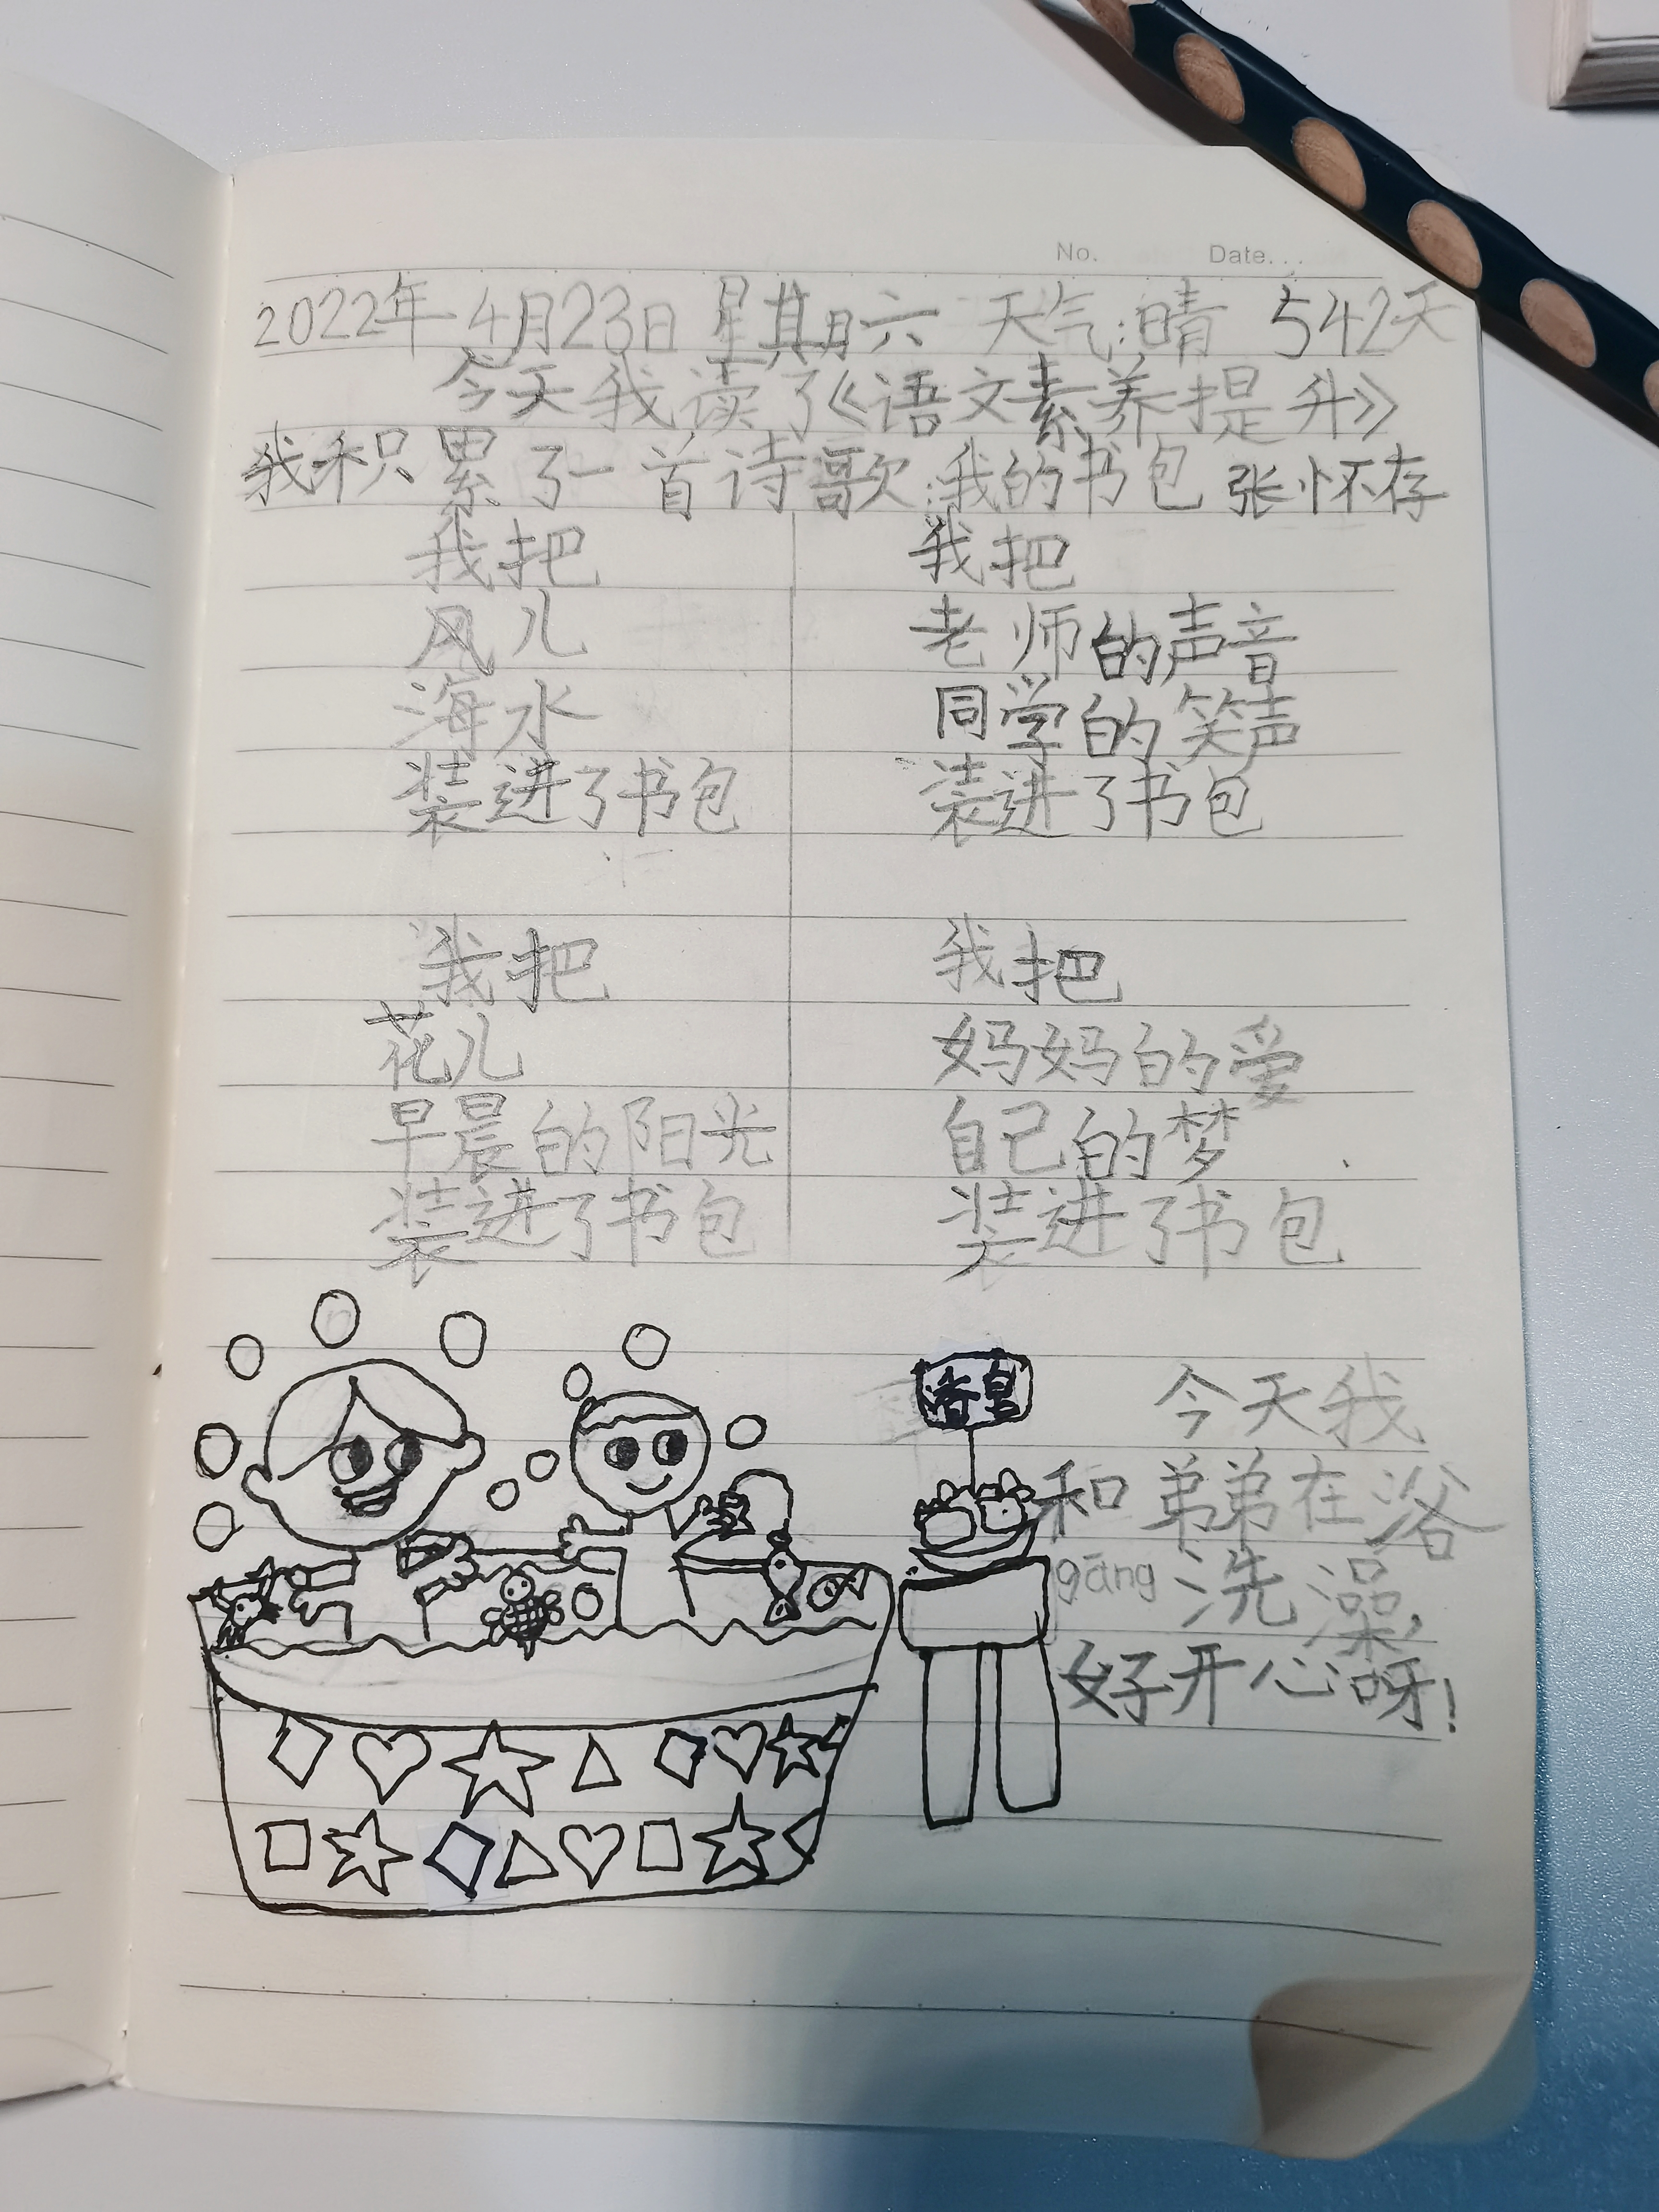 No. Date...
2022年4月23日 星期六 天气:晴 542天
今天我读了《语文素养提升》
我积累了一首诗歌:我的书包 张怀存
我把
风儿
海水
装进了书包
我把
花儿
早晨的阳光
装进了书包
我把
老师的声音
同学的笑声
装进了书包
我把
妈妈的爱
自己的梦
装进了书包
今天我
和弟弟在浴
gāng洗澡,
好开心呀!